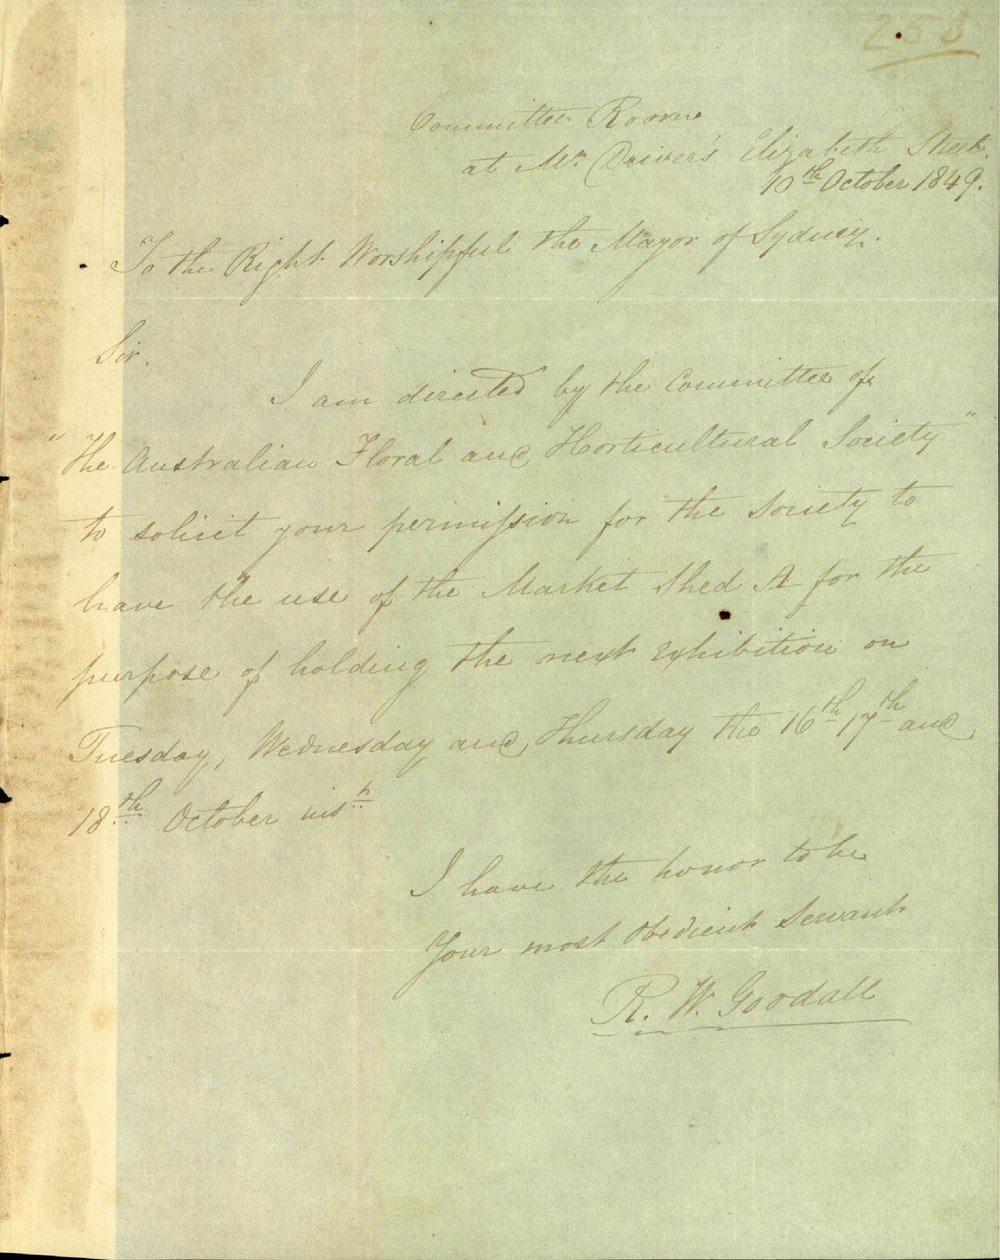 258
Committee Rooms
at Mr. Driver's Elizabeth Street.
10th October 1849.
To the Right Worshipful the Mayor of Sydney.
Sir.
I am directed by the Committee of
"The Australian Floral and Horticultural Society"
to solicit your permission for the Society to
have the use of the Market Shed A for the
purpose of holding the next exhibition on
Tuesday, Wednesday and Thursday the 16th 17th and
18th October inst.
I have the honor to be
Your most Obedient Servant
R. W. Goodall